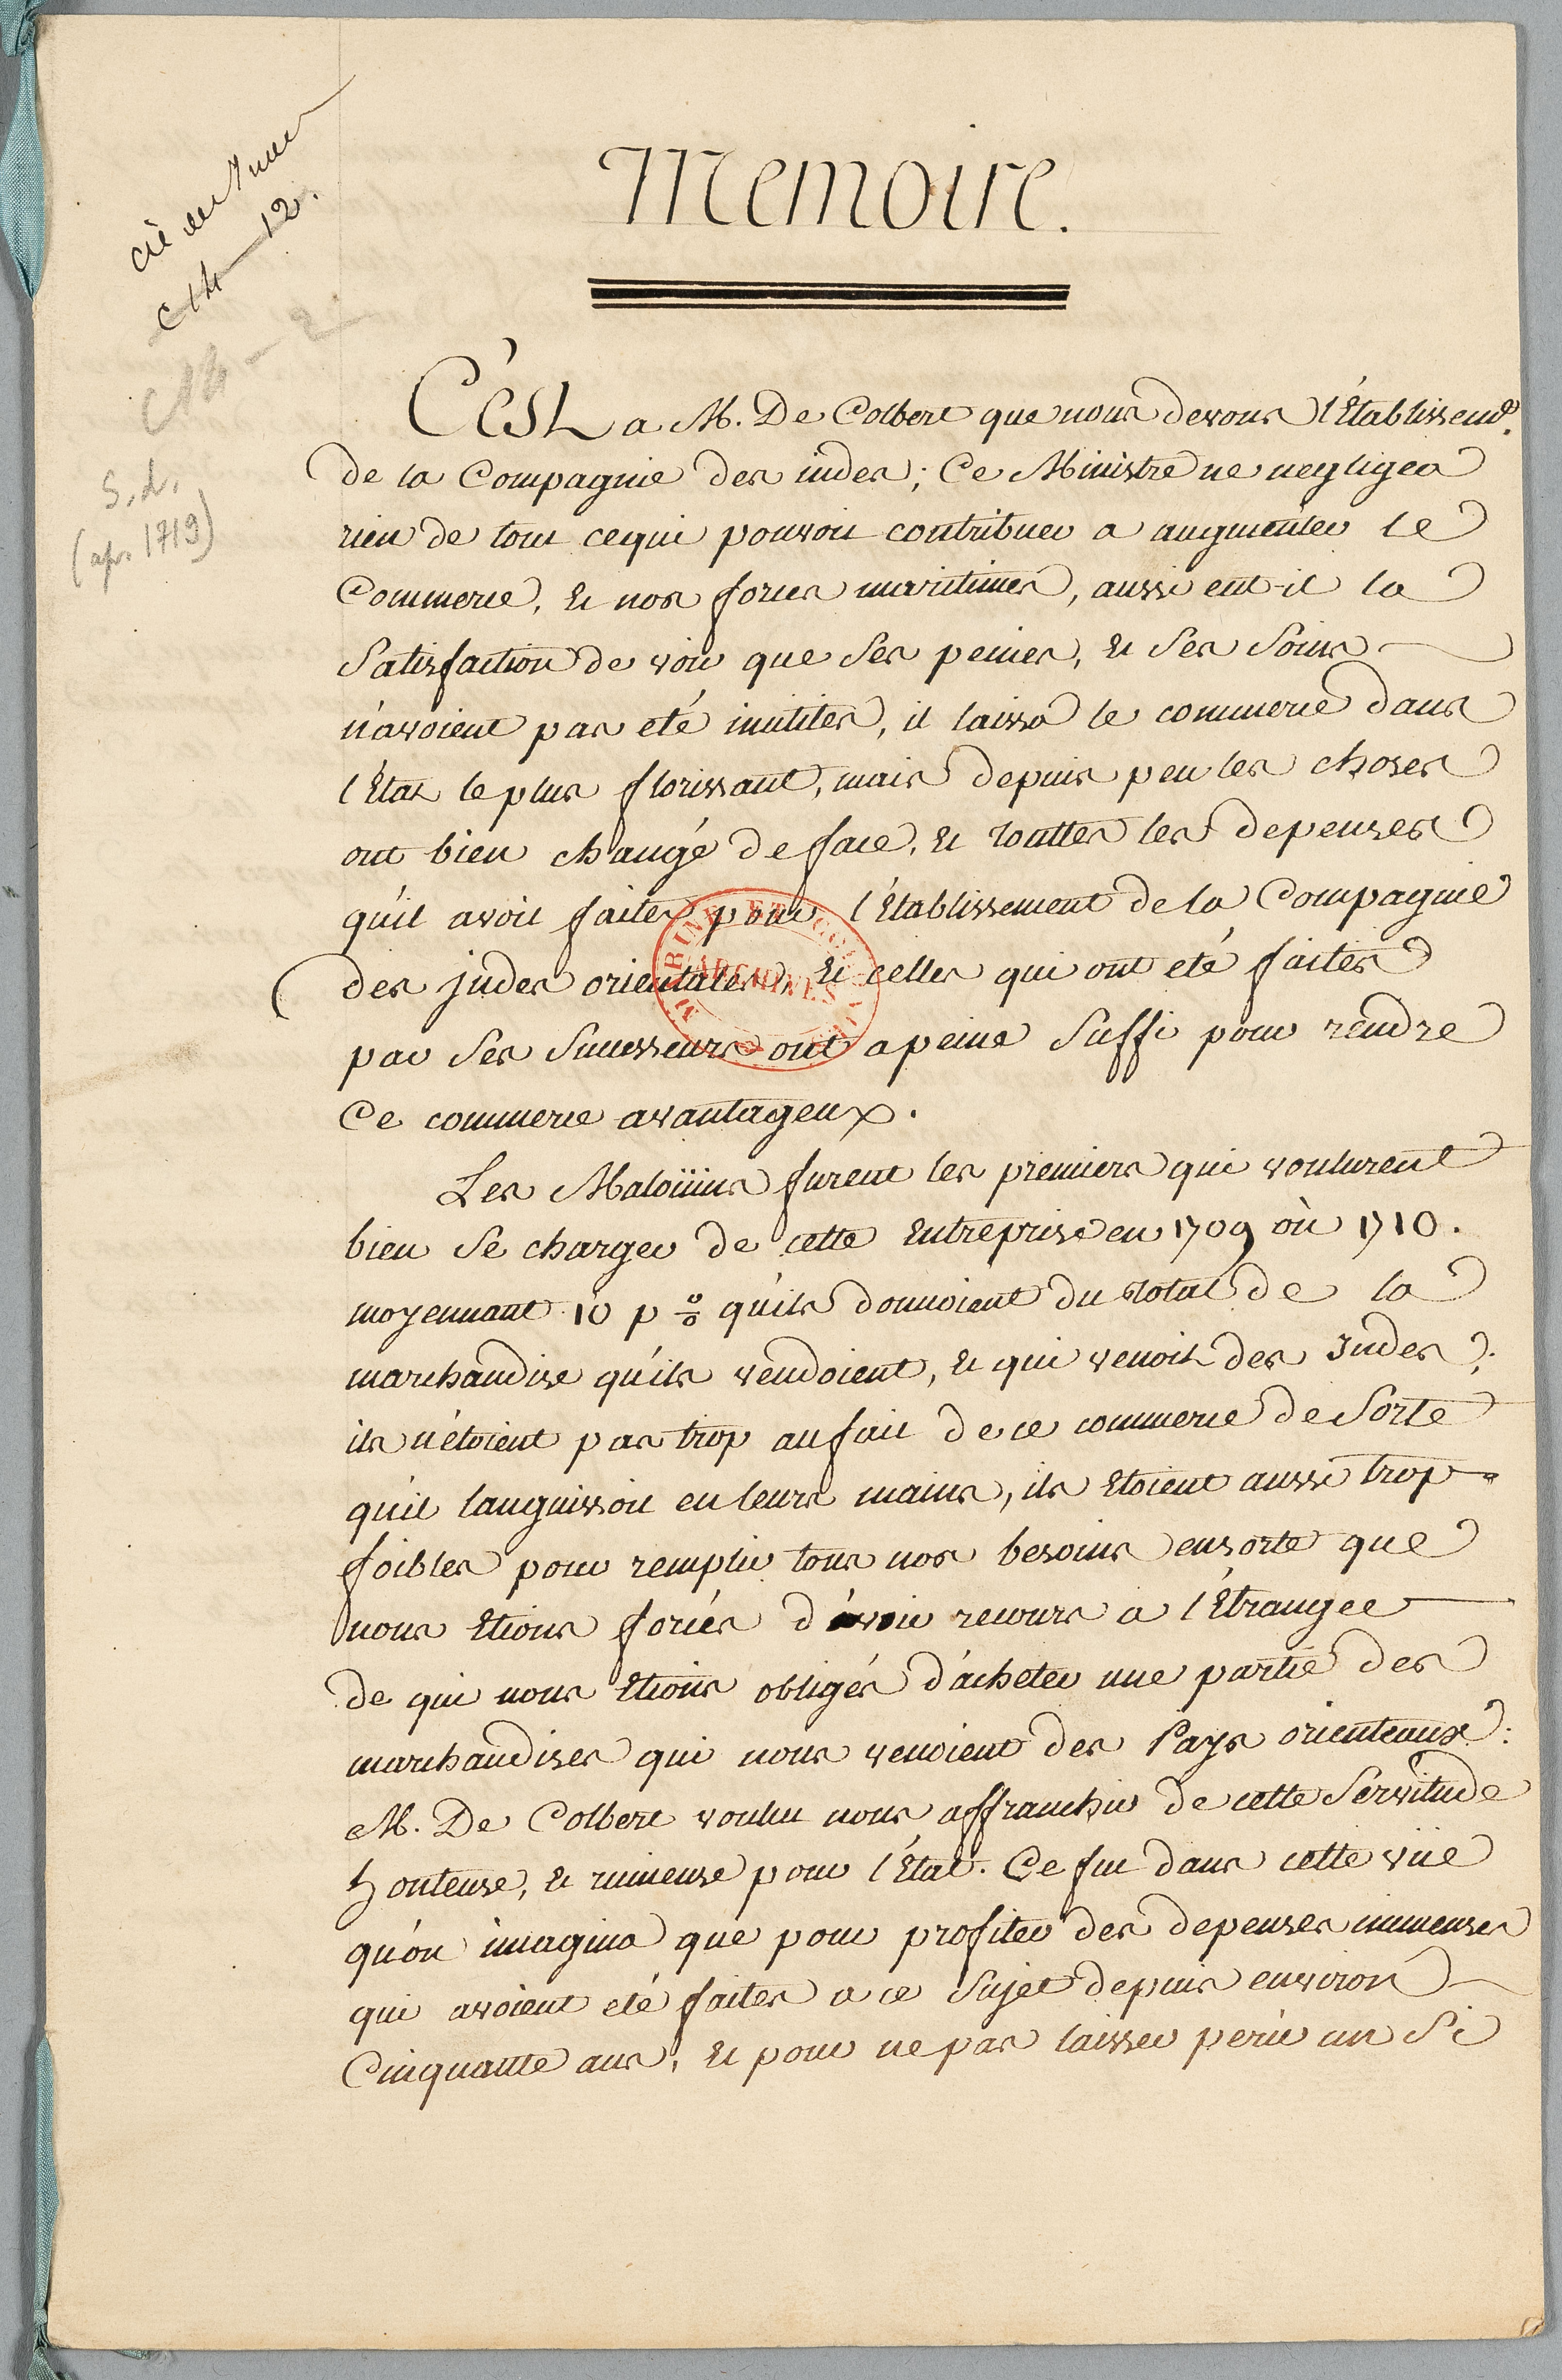 Memoire.
C14 12.
C14 - 2
S. d.
(ap. 1719)
C'ést a M. De Colbert que nous devons l'Établissemt.
de la Compagnie des indes; Ce Ministre ne negligea
rien de tout cequi pouvoit contribuer a augmenter le
Commerce, et nos forces maritimes, aussi eut-il la
Satisfaction de voir que Ses peines, et Ses Soins
n'avoient pas eté inutiles, il laissa le commerce dans
l'État le plus florissant, mais depuis peu les choses
ont bien changé de face, et touttes les depenses
qu'il avoit faites pour l'Établissement de la Compagnie
des jndes orientales, et celles qui ont eté faites
par Ses Successeurs ont apeine Suffi pour rendre
Ce commerce avantageux.
Les Maloüins furent les premiers qui voulurent
bien Se charger de cette Entreprise en 1709 où 1710.
moyennant 10 p % qu'ils donnoient du total de la
marchandise qu'ils vendoient, et qui venoit des Indes;
ils n'étoient pas trop aufait de ce commerce de Sorte
qu'il languissoit en leurs mains, ils Etoient aussi trop
foibles pour remplir tous nos besoins ensorte que
nous Etions forcés d'avoir recours a l'Étranger
de qui nous Etions obligés d'acheter une partie des
marchandises qui nous venoient des Pays orienteaux:
M. De Colbert voulut nous affranchir de cette Servitude
honteuse, et ruineuse pour l'État. Ce fut dans cette vüe
qu'on imagina que pour profiter des depenses immenses
qui avoient eté faites a ce Sujet depuis environ
Cinquante ans, et pour ne pas laisser perir un Si
MARINE ET COLONIES
ARCHIVES